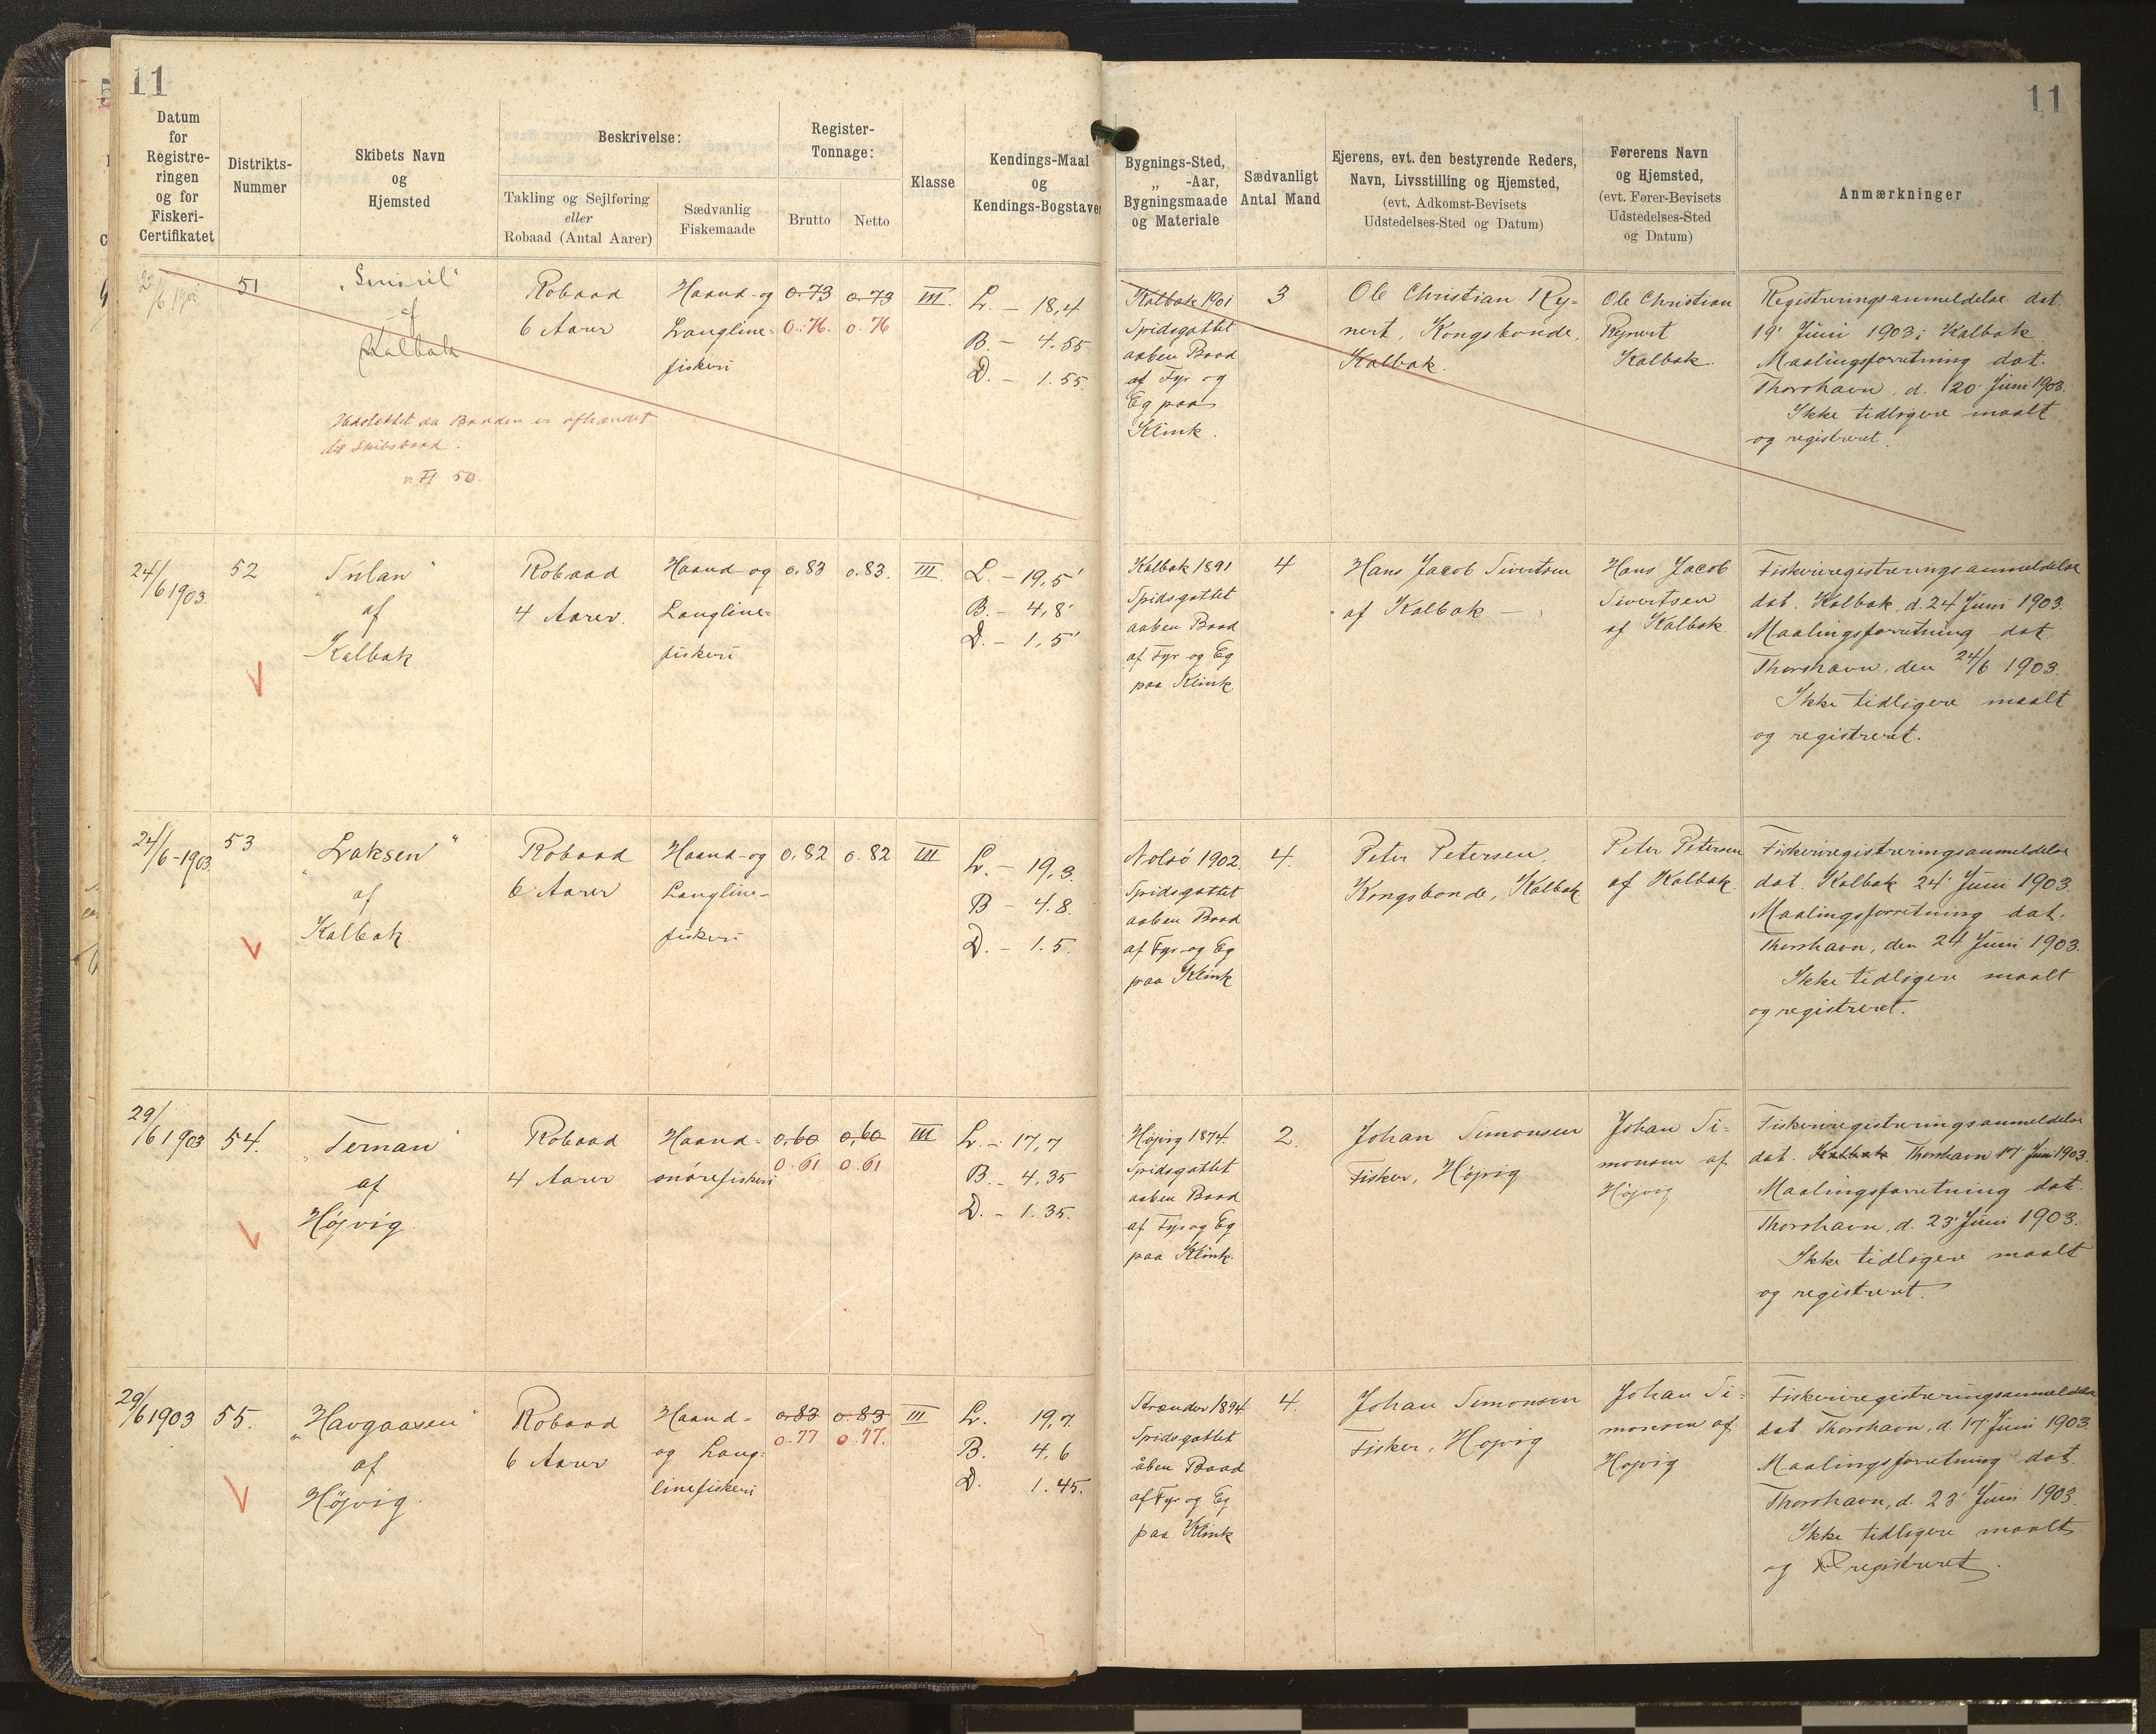 11
11
Datum
for
Registre-
ringen
og for
Fiskeri-
Certifikatet
Distrikts-
Nummer
Skibets Navn
og
Hjemsted
Beskrivelse:
Takling og Sejlføring
eller
Robaad (Antal Aarer)
Sædvanlig
Fiskemaade
Register-
Tonnage:
Brutto
Netto
Klasse
Kendings-Maal
og
Kendings-Bogstaver
Bygnings-Sted,
„ -Aar,
Bygningsmaade
og Materiale
Sædvanligt
Antal Mand
Ejerens, evt. den bestyrende Reders,
Navn, Livsstilling og Hjemsted,
(evt. Adkomst-Bevisets
Udstedelses-Sted og Datum)
Førerens Navn
og Hjemsted,
(evt. Fører-Bevisets
Udstedelses-Sted
og Datum)
Anmærkninger
51
„Smiril"
af
Kalbak
Robaad
6 Aarer
Haand- og
Langline-
fiskeri
0.73
0.76.
0.73
0.76
III.
L. – 18,4'
B. – 4.55
D. – 1.55.
Udslettet da Baaden er afhændet
til Skibsbaad.
50.
Kalbak 1901
Spidsgattet
aaben Baad
af Fyr og
Eg paa
Klink.
3
Ole Christian Rey-
nert, Kongsbonde,
Kalbak.
Ole Christian
Reynert
Kalbak.
Registreringsanmeldelse dat.
19' Juni 1903 i Kalbak
Maalingsforretning dat.
Thorshavn, d. 20' Juni 1903.
Ikke tidligere maalt
og registreret.
24/6 1903.
52
„Sulan"
af
Kalbak
Robaad
4 Aarer.
Haand- og
Langline-
fiskeri
0.83
0.83.
III.
L. – 19,5'
B. – 4,8'
D. – 1,5'
Kalbak 1891
Spidsgattet
aaben Baad
af Fyr og Eg
paa Klink.
4
Hans Jacob Sivertsen
af Kalbak –
Hans Jacob
Sivertsen
af Kalbak
Fiskeriregistreringsanmeldelse
dat. Kalbak, d. 24' Juni 1903.
Maalingsforretning dat.
Thorshavn, den 24/6 1903.
Ikke tidligere maalt
og registreret.
24/6-1903
53
„Laksen"
af
Kalbak
Robaad
6 Aarer
Haand- og
Langline-
fiskeri
0.82
0.82
III
L. – 19,3.
B – 4.8.
D. – 1.5.
Nolsö 1902.
Spidsgattet
aaben Baad
af Fyr og Eg
paa Klink
4.
Peter Petersen,
Kongsbonde, Kalbak
Peter Petersen
af Kalbak.
Fiskeriregistreringsanmeldelse
dat. Kalbak 24' Juni 1903.
Maalingsforretning dat.
Thorshavn, den 24 Juni 1903.
Ikke tidligere maalt
og registreret.
29/6 1903
54.
„Ternan"
af
Höjvig.
Robaad
4 Aarer
Haand-
snörefiskeri
0,60
0.61
0,60
0.61
III
L. – 17,7
B. – 4,35
D. – 1.35.
Höjvig 1874.
Spidsgattet
aaben Baad
af Fyr og Eg
paa Klink.
2.
Johan Simonsen
Fisker, Höjvig
Johan Si-
monsen af
Höjvig
Fiskeriregistreringsanmeldelse
dat. Kalbak Thorshavn 17' Juni 1903.
Maalingsforretning dat.
Thorshavn, d. 23' Juni 1903.
Ikke tidligere maalt
og registreret.
29/6 1903
55.
„Havgaasen"
af
Höjvig.
Robaad
6 Aarer
Haand-
og Lang-
linefiskeri
0.83
0.77
0.83
0.77.
III
L. 19,7.
B. 4,6
D. 1.45.
Strænder 1894.
Spidsgattet
åben Baad
af Fyr og Eg
paa Klink
4.
Johan Simonsen
Fisker, Hojvig
Johan Si-
monsen af
Hojvig
Fiskeriregistreringsanmeldelse
dat Thorshavn, d. 17' Juni 1903.
Maalingsforretning dat.
Thorshavn, d. 23' Juni 1903.
Ikke tidligere maalt
og registreret.